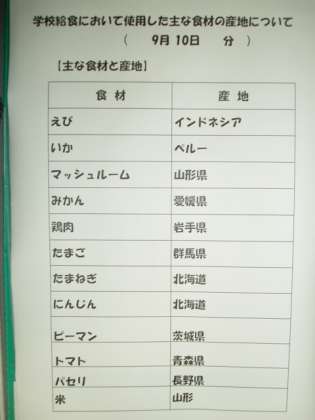 学校給食において使用した主な食材の産地について
（ 9月10日 分 ）
【主な食材と産地】
食材 産地
えび インドネシア
いか ペルー
マッシュルーム 山形県
みかん 愛媛県
鶏肉 岩手県
たまご 群馬県
たまねぎ 北海道
にんじん 北海道
ピーマン 茨城県
トマト 青森県
パセリ 長野県
米 山形